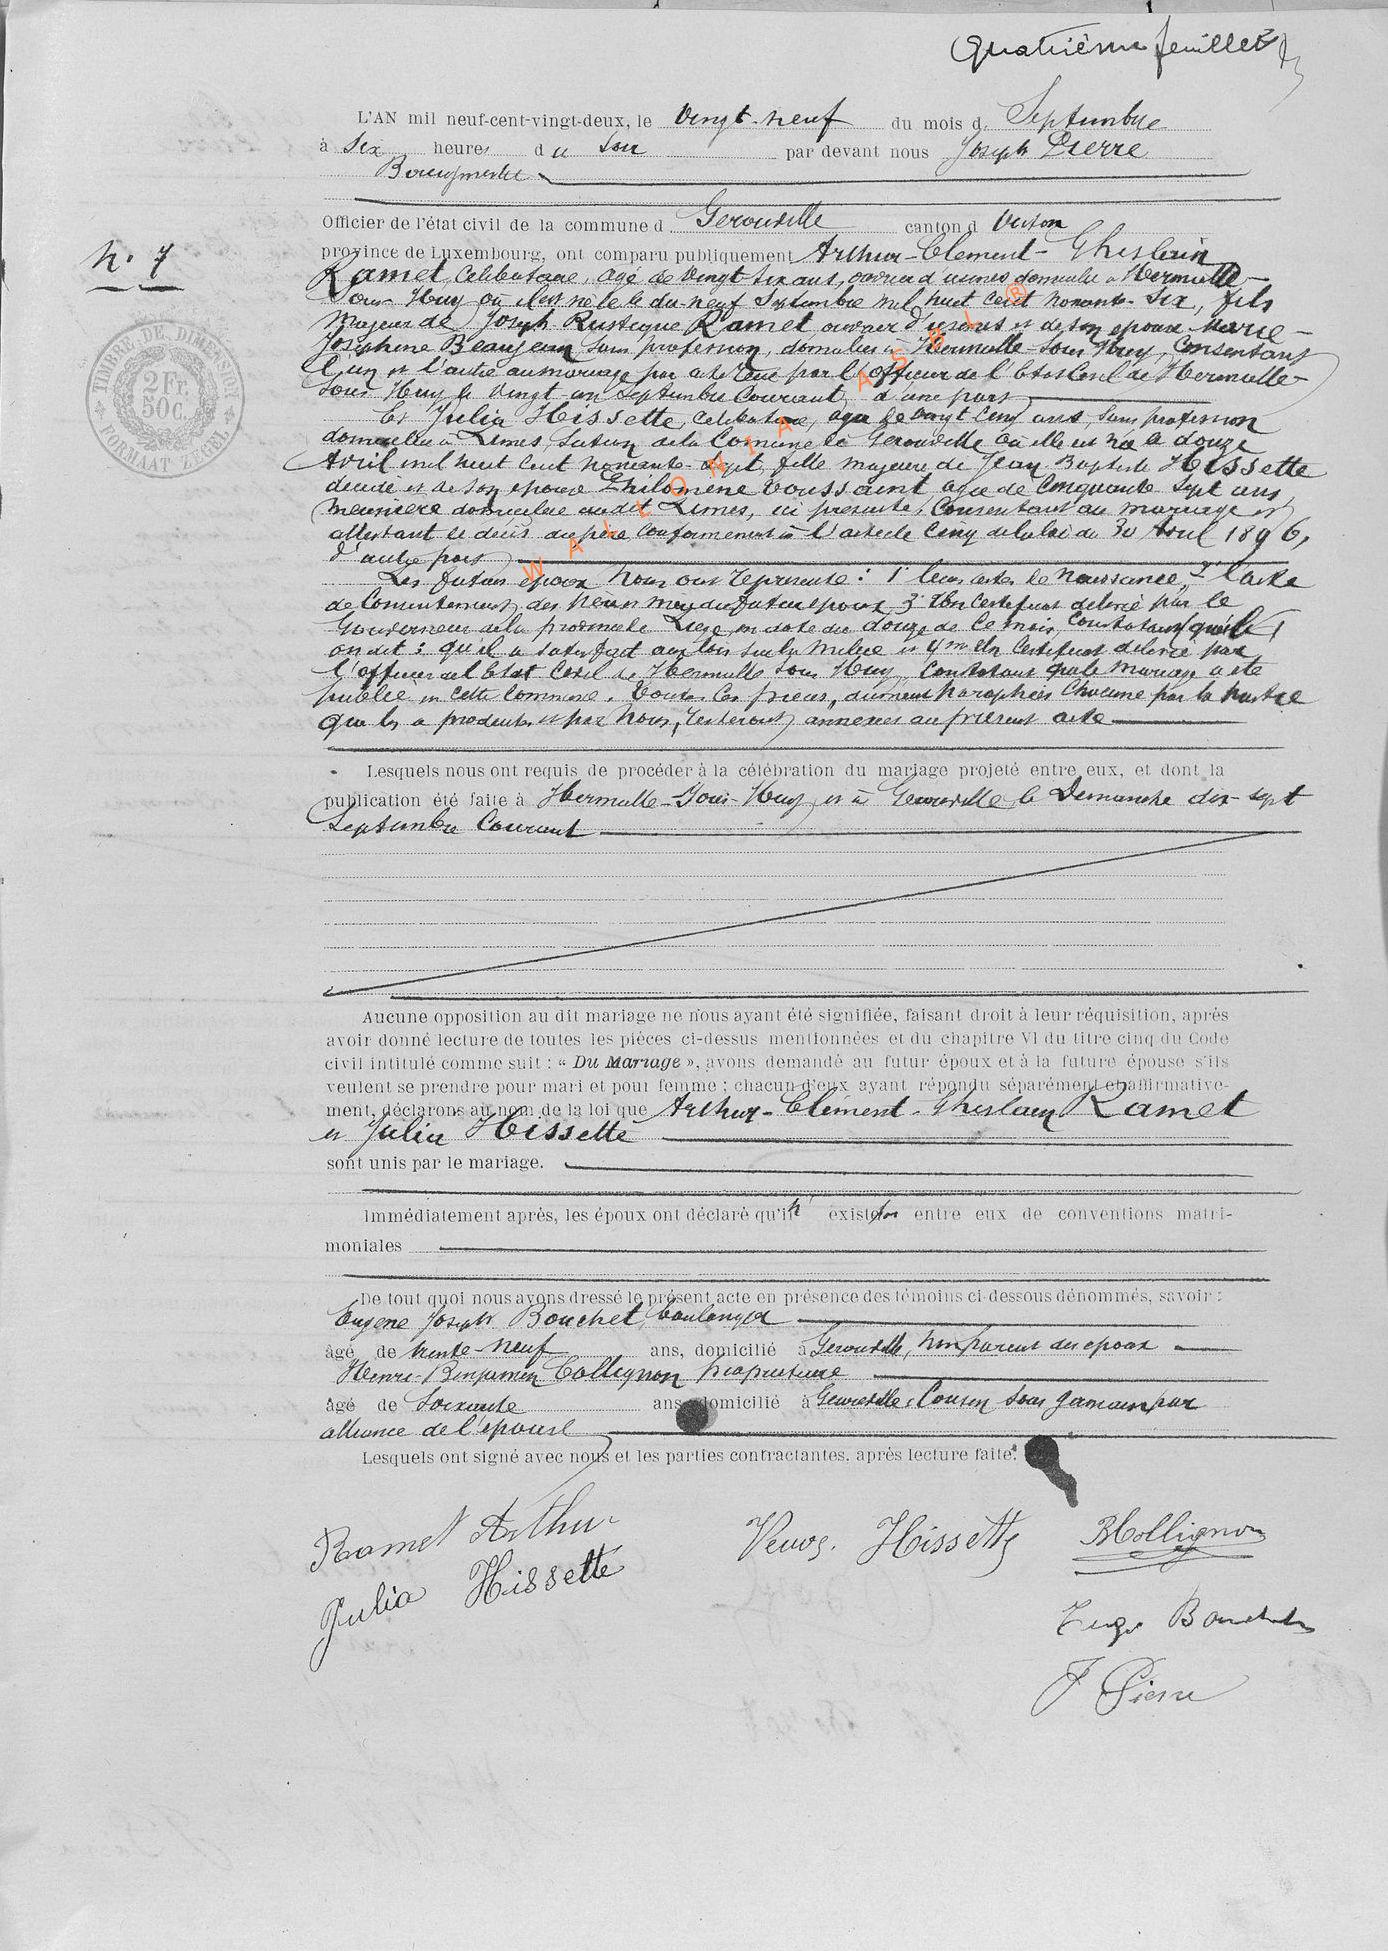 Quatrième feuillet
L'AN mil neuf-cent-vingt-deux, le vingt-neuf du mois d Septembre
à six heures du soir par devant nous Joseph Pierre
Bourgmestre
Officier de l'état civil de la commune d Gerouville canton d Virton
n. 7
province de Luxembourg, ont comparu publiquement Arthur-Clement-Ghislain
Ramet, celibataire, agé de vingt six ans, ouvrier d'usines domicilié à Hermalle-
Sous-Huy où il est né le dix-neuf Septembre mil huit cent nonante-six, fils
majeur de Joseph Rustique Ramet ouvrier d'usines et de son epouse Marie-
Josephine Beaujean sans profession, domiciliés à Hermalle-Sous-Huy, consentant
l'un et l'autre au mariage par acte reçu par l'officier de l'Etat Civil de Hermalle-
Sous Huy le vingt-un Septembre courant, d'une part
Et Julia Hissette, celibataire, agée de vingt cinq ans, sans profession
domiciliée à Limes, section de la Commune de Gerouville où elle est née le douze
Avril mil huit cent nonante-sept, fille majeure de Jean Baptiste Hissette
décédé et de son epouse Philomène Toussaint agée de cinquante sept ans,
meunière domiciliée audit Limes, ici présente, consentant au mariage et
attestant le décès du père conformément à l'article cinq de la loi du 30 Avril 1896,
d'autre part
Les futurs epoux nous ont représenté : 1° leurs actes de naissance, 2° l'acte
de consentement des père et mère du futur epoux 3° Un certificat délivré par le
Gouverneur de la province de Liège, en date du douze de ce mois, constatant qu'il
on dit : qu'il a satisfait aux lois sur la milice et 4° un certificat délivré par
l'officier de l'Etat Civil de Hermalle Sous Huy, constatant que le mariage a été
publié en cette commune. Toutes ces pièces, dûment paraphées chacune par la partie
qui les a produites et par nous, resteront annexées au présent acte
Lesquels nous ont requis de procéder à la célébration du mariage projeté entre eux, et dont la
publication été faite à Hermalle-Sous-Huy et à Gerouville le Dimanche dix-sept
Septembre courant
Aucune opposition au dit mariage ne nous ayant été signifiée, faisant droit à leur réquisition, après
avoir donné lecture de toutes les pièces ci-dessus mentionnées et du chapitre VI du titre cinq du Code
civil intitulé comme suit : « Du Mariage », avons demandé au futur époux et à la future épouse s'ils
veulent se prendre pour mari et pour femme ; chacun d'eux ayant répondu séparément et affirmative-
ment, déclarons au nom de la loi que Arthur-Clément-Ghislain Ramet
et Julia Hissette
sont unis par le mariage.
Immédiatement après, les époux ont déclaré qu'il n' existe pas entre eux de conventions matri-
moniales
De tout quoi nous avons dressé le présent acte en présence des témoins ci-dessous dénommés, savoir :
Eugène Joseph Bouchet, boulanger
âgé de trente-neuf ans, domicilié à Gerouville, non parent des epoux
Henri-Benjamin Collignon propriétaire
âgé de soixante ans domicilié à Gerouville, Cousin sous germain par
alliance de l'épouse
Lesquels ont signé avec nous et les parties contractantes, après lecture faite.
Ramet Arthur
Veuve Hissette
Collignon
Julia Hissette
Bouchet
J Pierre
TIMBRE DE DIMENSION
2 Fr.
50 C.
FORMAAT ZEGEL
WALLONIA ASBL ®